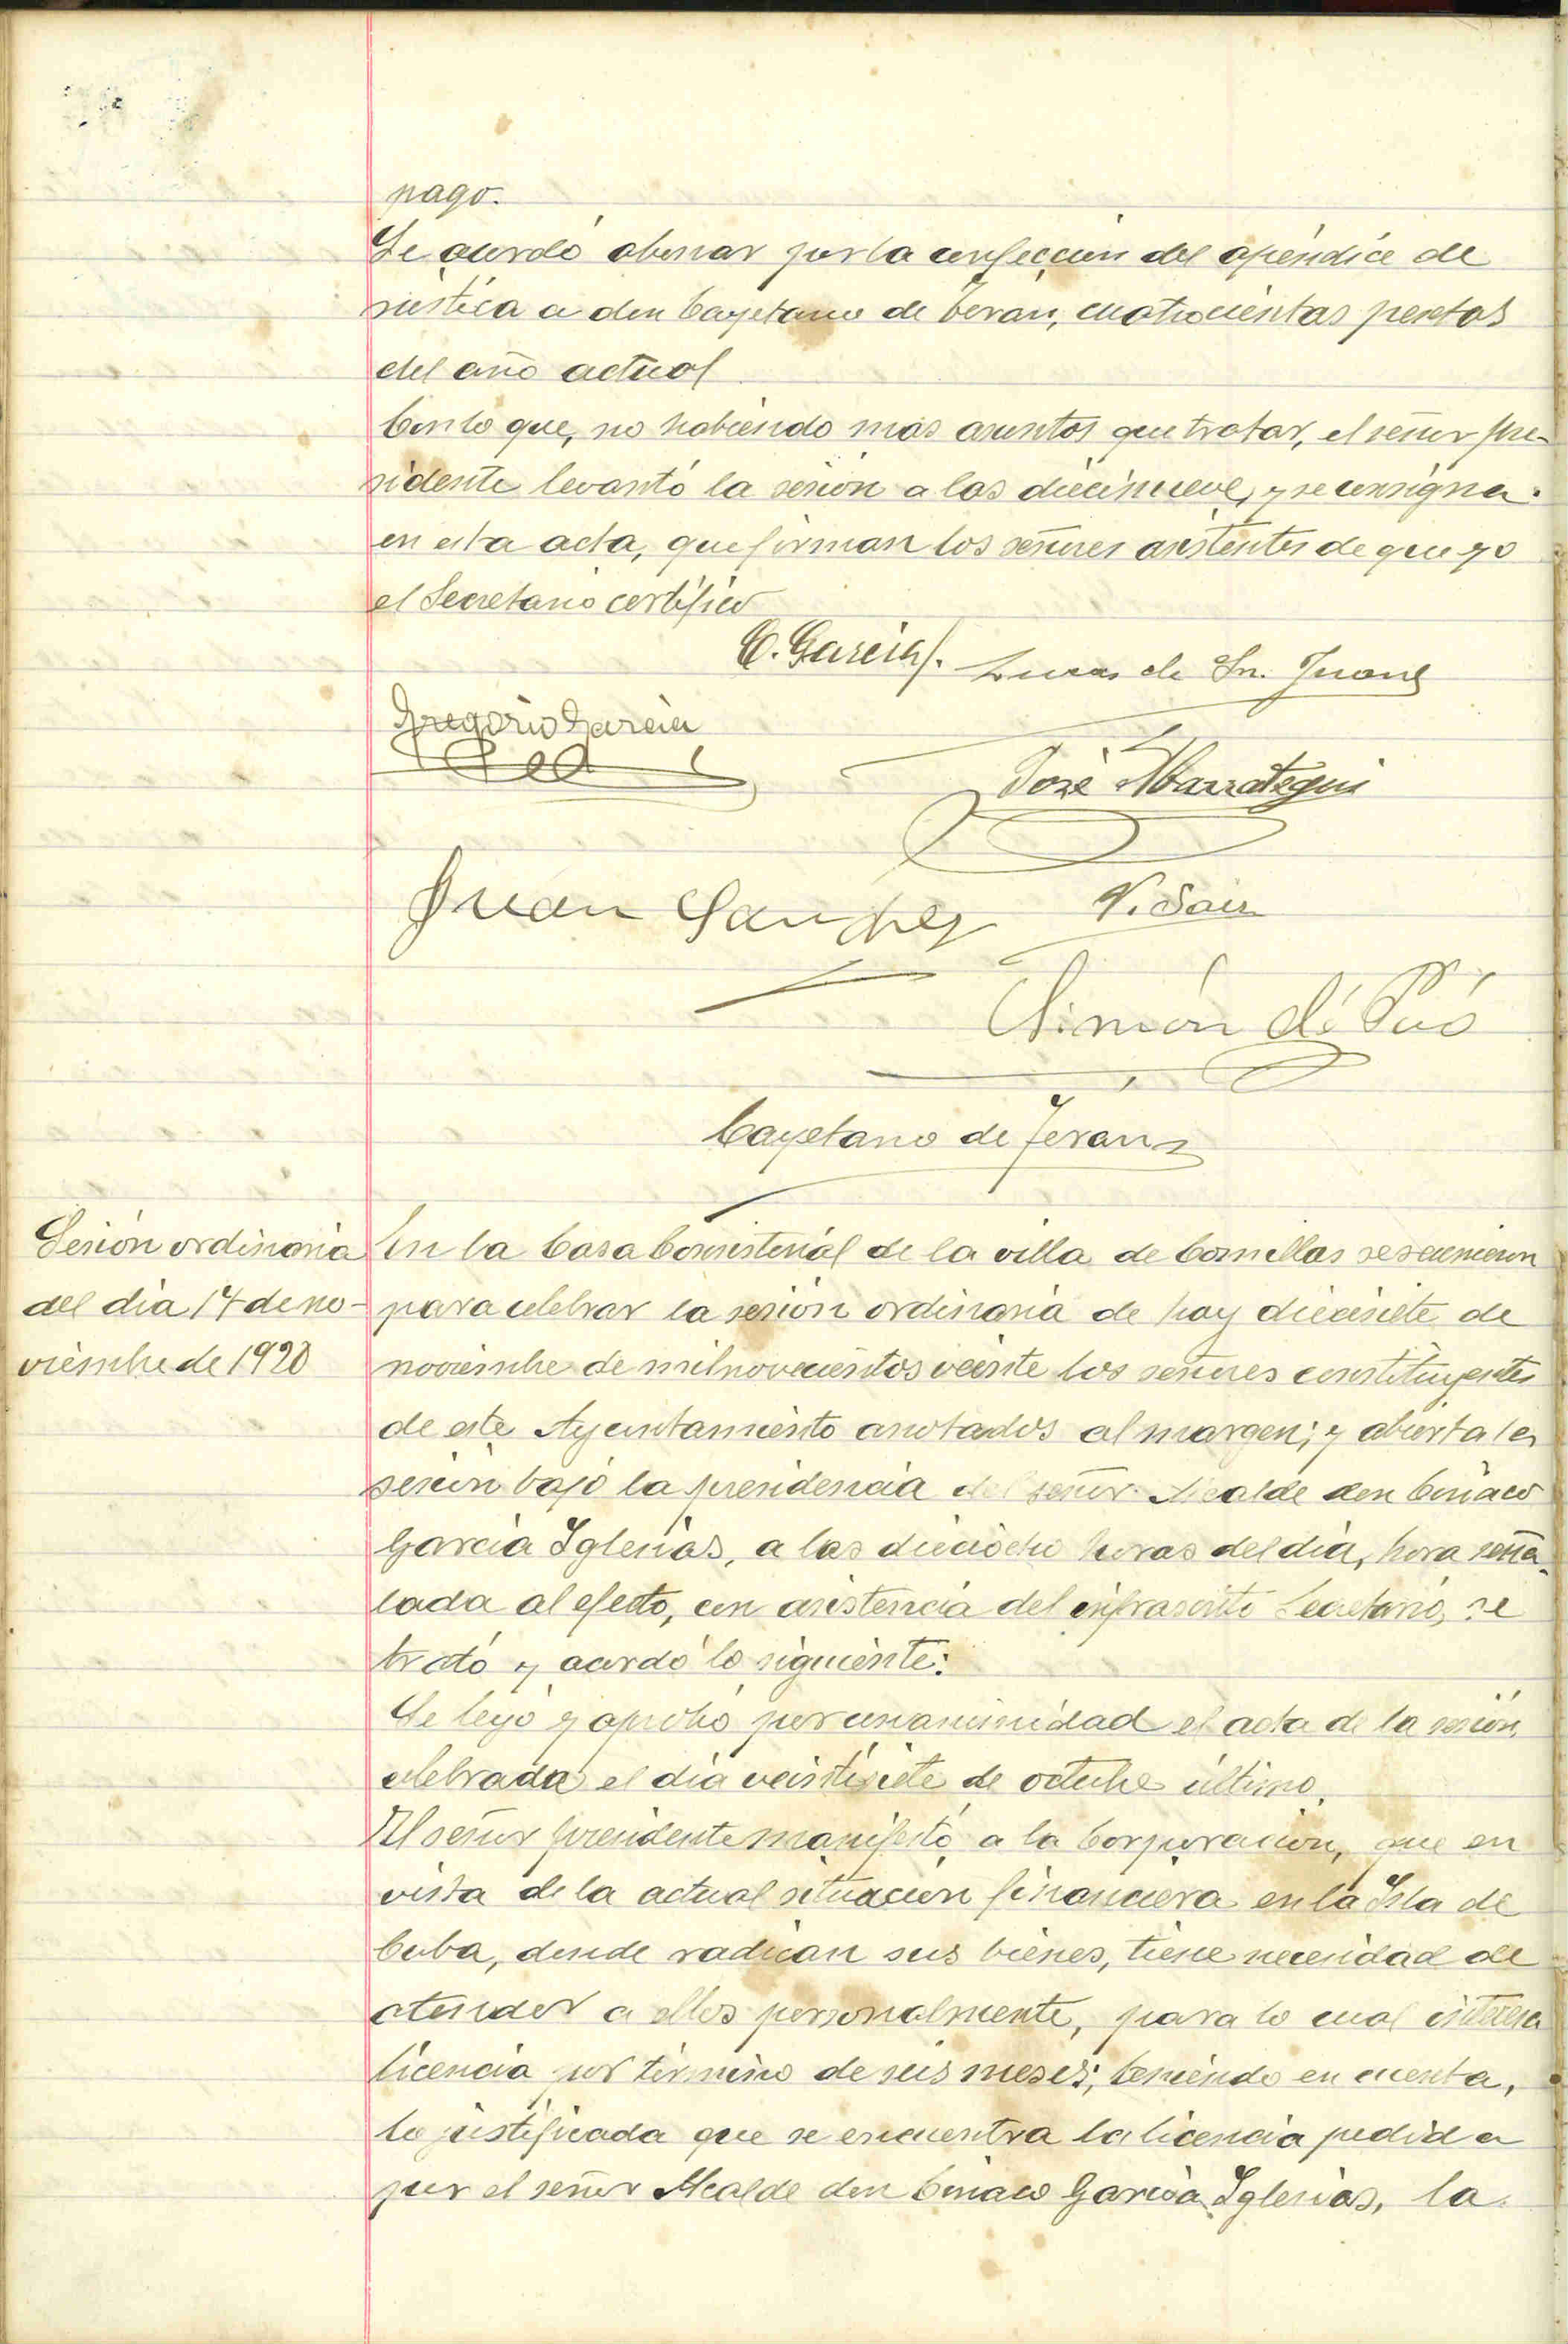 pago.
Se acordó abonar por la confección del apéndice de
rústica a don Cayetano de Terán, cuatrocientas pesetas
del año actual
Con lo que, no habiendo más asuntos que tratar, el señor Pre-
sidente levantó la sesión a las diecinueve, y se consigna
en esta acta, que firman los señores asistentes de que yo
el Secretario certifico
C. García
Lucas de Sn. Juan
Gregorio García
José Abarrategui
Juan Sanchez
V. Saiz
Simón de Pió
Cayetano de Teran
Sesión ordinaria
del día 17 de no-
viembre de 1920
En la Casa Consistorial de la villa de Comillas se reunieron
para celebrar la sesión ordinaria de hoy diecisiete de
noviembre de mil novecientos veinte los señores constituyentes
de este Ayuntamiento anotados al margen; y abierta la
sesión bajo la presidencia del señor Alcalde don Ciriaco
García Iglesias, a las dieciocho horas del día, hora seña-
lada al efecto, con asistencia del infrascrito Secretario, se
trató y acordó lo siguiente:
Se leyó y aprobó por unanimidad el acta de la sesión
celebrada el día veintisiete de octubre último.
El señor presidente manifestó a la Corporación, que en
vista de la actual situación financiera en la Isla de
Cuba, donde radican sus bienes, tiene necesidad de
atender a ellos personalmente, para lo cual interesa
licencia por término de seis meses; teniendo en cuenta,
lo justificada que se encuentra la licencia pedida
por el señor Alcalde don Ciriaco García Iglesias, la